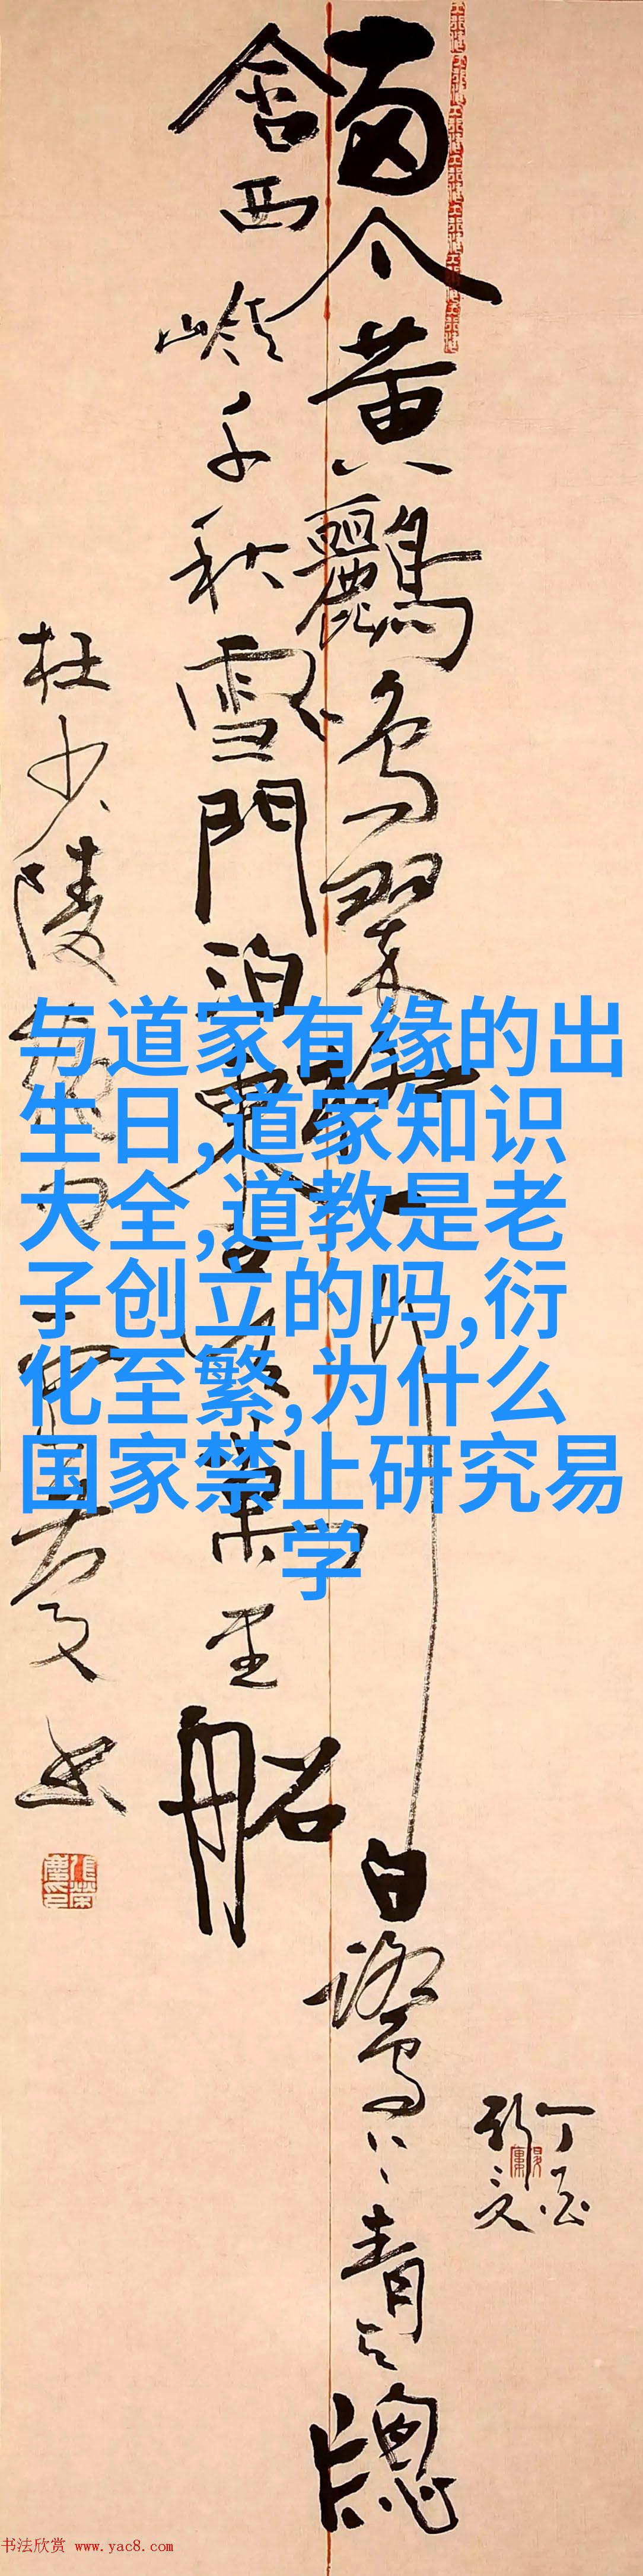 兩个黃鸝鳴翠柳一行白鷺上青天牕
含西岭千秋雪門泊東吴萬里船
杜少陵
丁酉
与道家有缘的出
生日,道家知识
大全,道教是老
子创立的吗,衍
化至繁,为什么
国家禁止研究易
学
书法欣赏 www.yac8.com